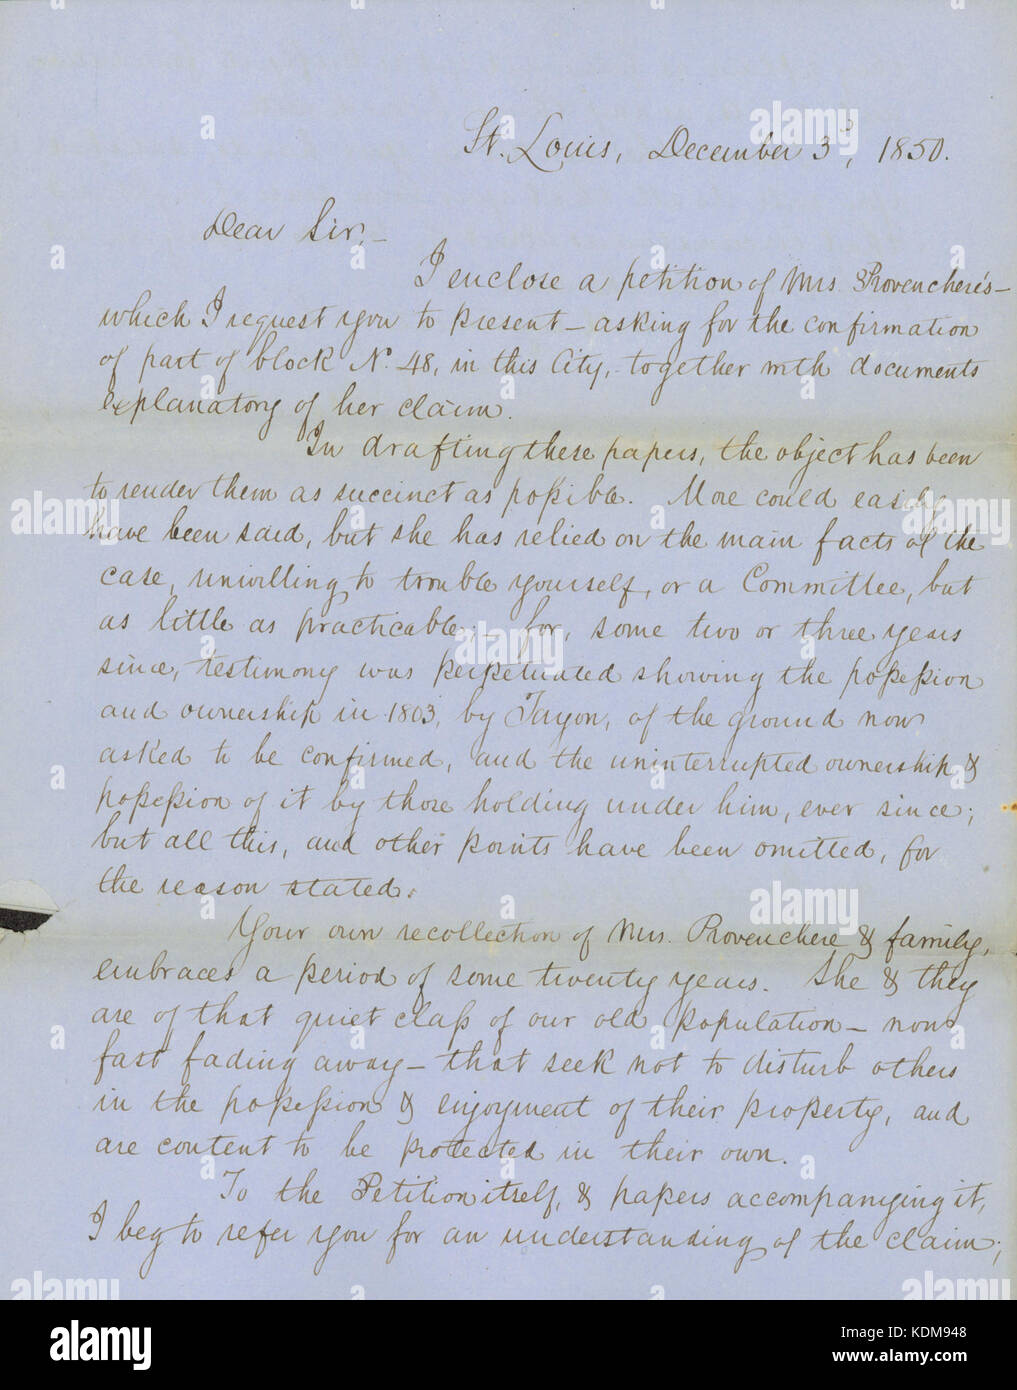 St. Louis, December 3d, 1850.
Dear Sir,—
I enclose a petition of Mrs. Provencheré's—
which I request you to present — asking for the confirmation
of part of block No. 48, in this City, together with documents
explanatory of her claim.
In drafting these papers, the object has been
to render them as succinct as possible. More could easily
have been said, but she has relied on the main facts of the
case, unwilling to trouble yourself, or a Committee, but
as little as practicable; — for, some two or three years
since, testimony was perpetuated showing the possession
and ownership in 1803, by Tayon, of the ground now
asked to be confirmed, and the uninterrupted ownership &
possession of it by those holding under him, ever since;
but all this, and other points have been omitted, for
the reason stated.
Your own recollection of Mrs. Provenchere & family,
embraces a period of some twenty years. She & they
are of that quiet class of our old population — now
fast fading away — that seek not to disturb others
in the possession & enjoyment of their property, and
are content to be protected in their own.
To the Petition itself, & papers accompanying it,
I beg to refer you for an understanding of the claim;
alamy stock photo
KDM948
www.alamy.com